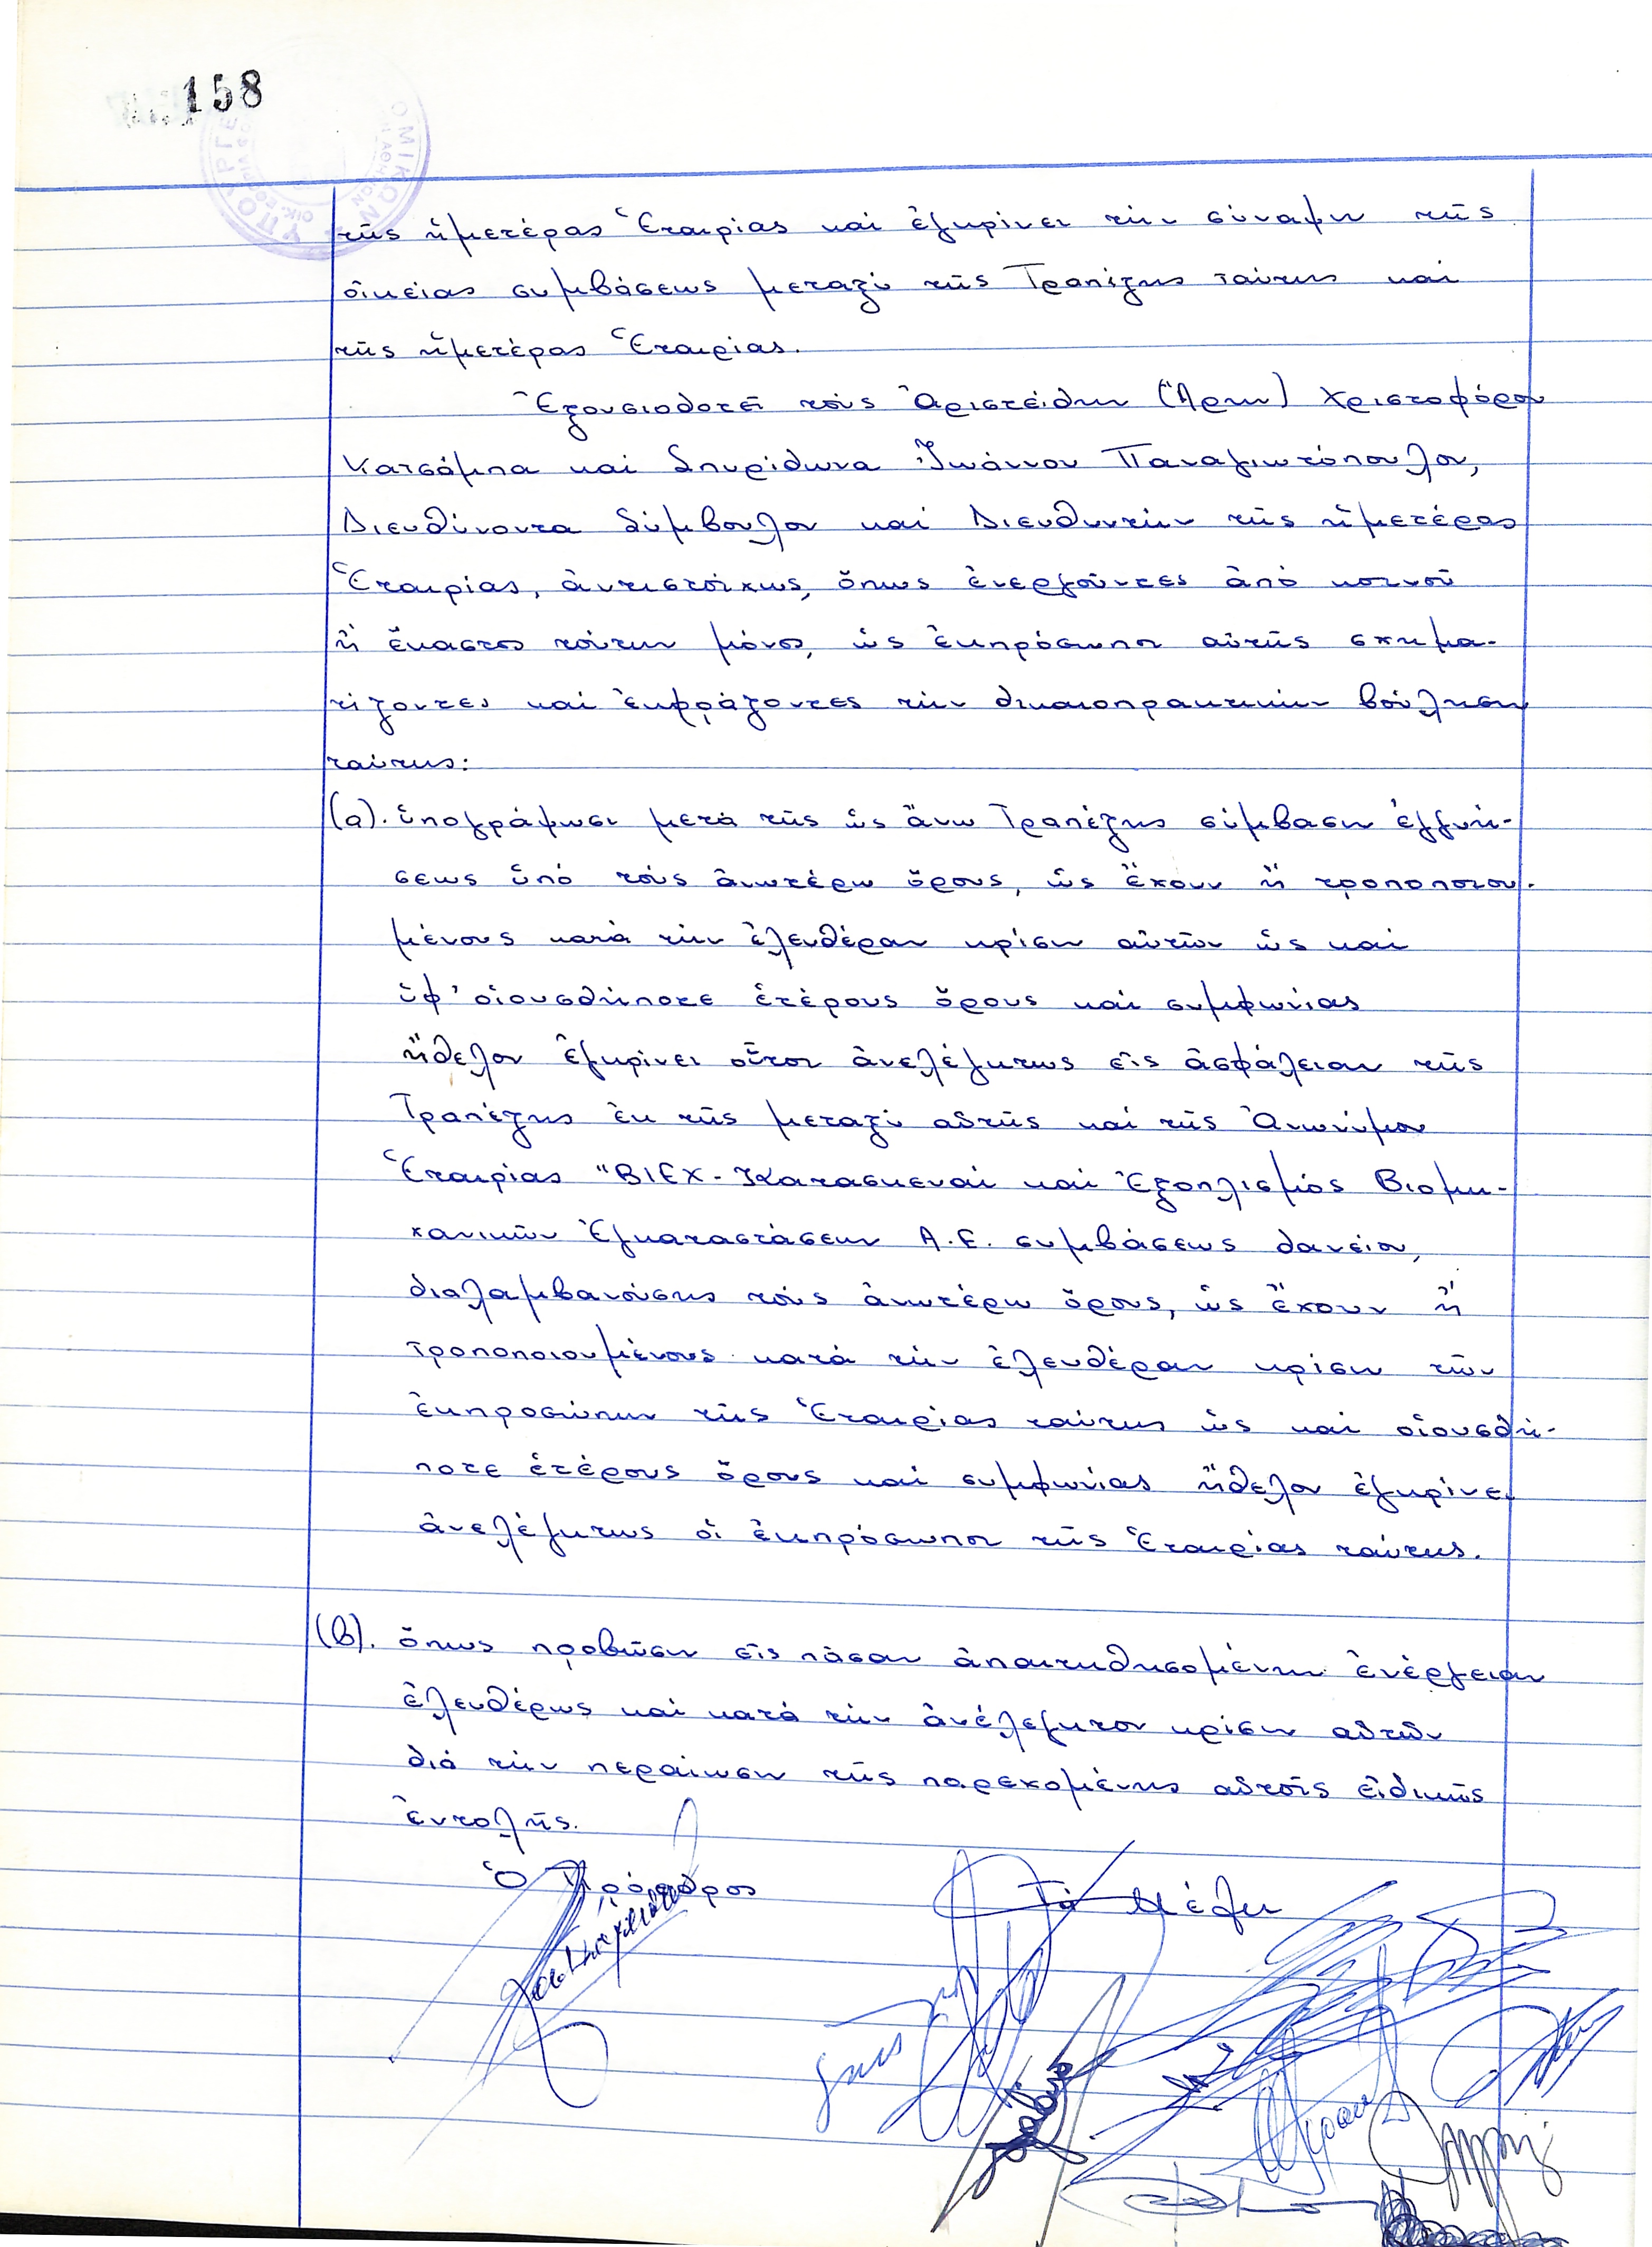 158
τῆς ἡμετέρας Ἑταιρίας καί ἐγκρίνει τήν σύναψιν τῆς
οἰκείας συμβάσεως μεταξύ τῆς Τραπέζης ταύτης καί
τῆς ἡμετέρας Ἑταιρίας.
Ἐξουσιοδοτεῖ τούς Ἀριστείδην (Ἄρην) Χριστοφόρου
Κατσάμπα καί Σπυρίδωνα Ἰωάννου Παναγιωτόπουλον,
Διευθύνοντα Σύμβουλον καί Διευθυντήν τῆς ἡμετέρας
Ἑταιρίας, ἀντιστοίχως, ὅπως ἐνεργοῦντες ἀπό κοινοῦ
ἤ ἕκαστος τούτων μόνος, ὡς ἐκπρόσωποι αὐτῆς σχημα-
τίζοντες καί ἐκφράζοντες τήν δικαιοπρακτικήν βούλησιν
ταύτης:
(α). ὑπογράψωσι μετά τῆς ὡς ἄνω Τραπέζης σύμβασιν ἐγγυή-
σεως ὑπό τούς ἀνωτέρω ὅρους, ὡς ἔχουν ἤ τροποποιου-
μένους κατά τήν ἐλευθέραν κρίσιν αὐτῶν ὡς καί
ὑφ' οἱουσδήποτε ἑτέρους ὅρους καί συμφωνίας
ἤθελον ἐγκρίνει οὗτοι ἀνελέγκτως εἰς ἀσφάλειαν τῆς
Τραπέζης ἐκ τῆς μεταξύ αὐτῆς καί τῆς Ἀνωνύμου
Ἑταιρίας "ΒΙΕΧ - Κατασκευαί καί Ἐξοπλισμός Βιομη-
χανικῶν Ἐγκαταστάσεων Α.Ε. συμβάσεως δανείου,
διαλαμβανούσης τούς ἀνωτέρω ὅρους, ὡς ἔχουν ἤ
τροποποιουμένους κατά τήν ἐλευθέραν κρίσιν τῶν
ἐκπροσώπων τῆς Ἑταιρίας ταύτης ὡς καί οἱουσδή-
ποτε ἑτέρους ὅρους καί συμφωνίας ἤθελον ἐγκρίνει
ἀνελέγκτως οἱ ἐκπρόσωποι τῆς Ἑταιρίας ταύτης.
(β). ὅπως προβῶσιν εἰς πᾶσαν ἀπαιτηθησομένην ἐνέργειαν
ἐλευθέρως καί κατά τήν ἀνέλεγκτον κρίσιν αὐτῶν
διά τήν περαίωσιν τῆς παρεχομένης αὐτοῖς εἰδικῆς
ἐντολῆς.
Ὁ Πρόεδρος
Τά Μέλη